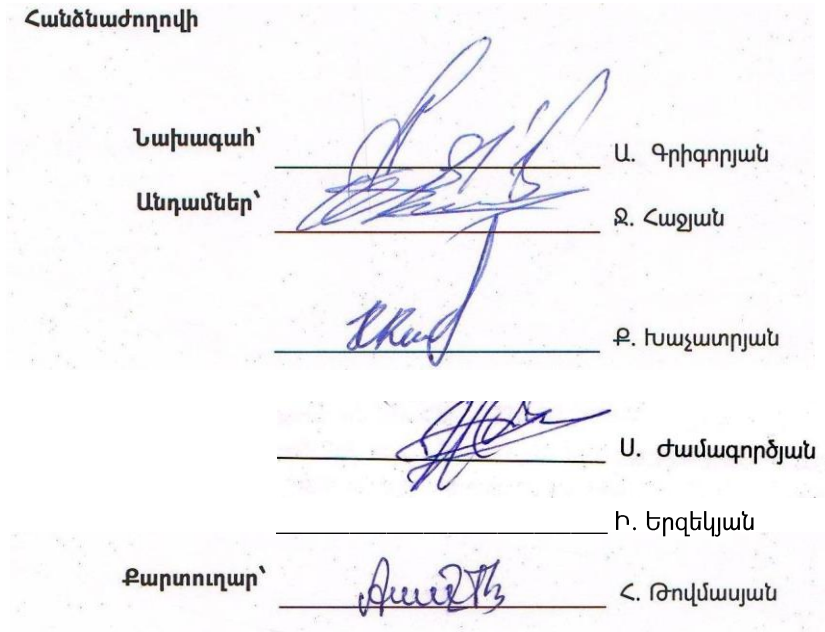 Հանձնաժողովի
Նախագահ՝ Ա. Գրիգորյան
Անդամներ՝ Ջ. Հաջյան
Ք. Խաչատրյան
Ս. Ժամագործյան
Ի. Երզեկյան
Քարտուղար՝ Հ. Թովմասյան